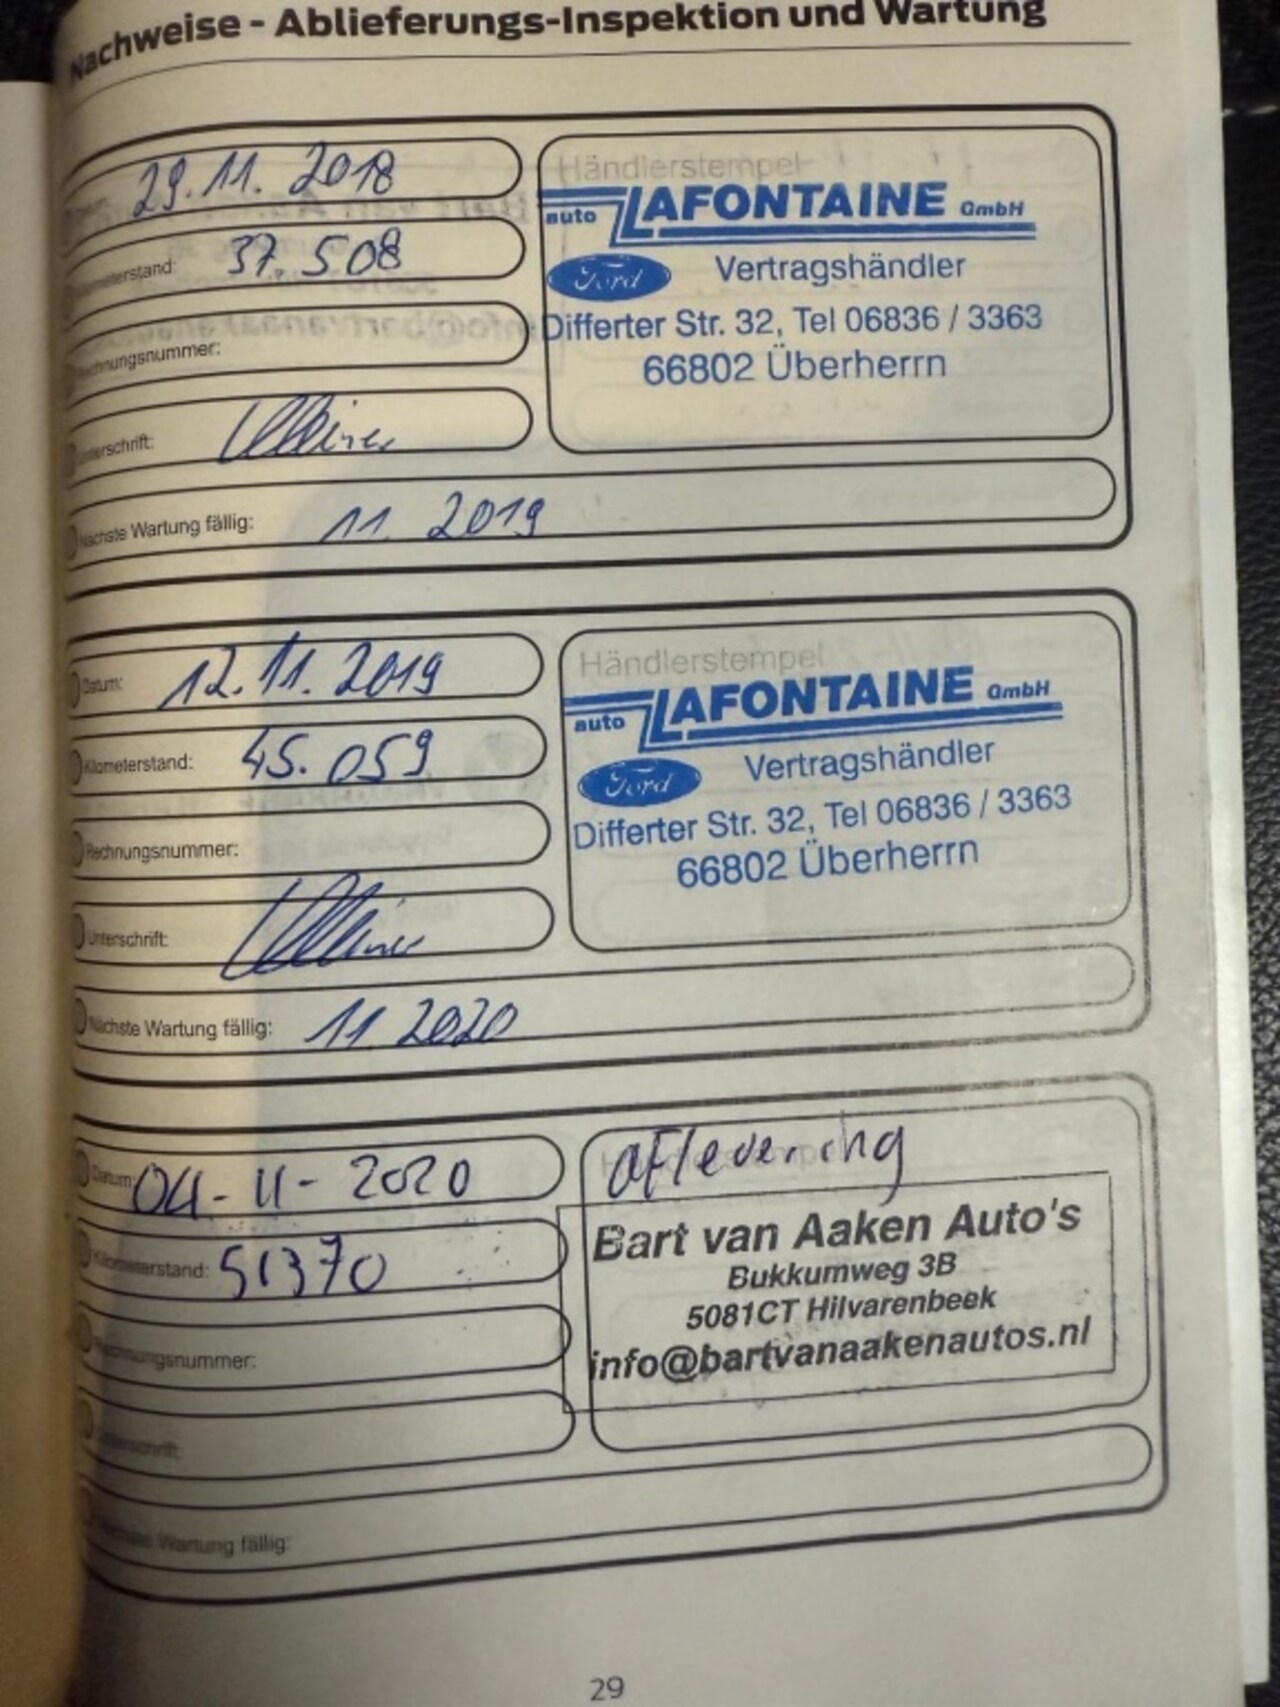 Nachweise - Ablieferungs-Inspektion und Wartung
29.11.2018
Kilometerstand: 37.508
Rechnungsnummer:
Unterschrift:
Nächste Wartung fällig: 11. 2019
Händlerstempel
auto LAFONTAINE GmbH
Ford Vertragshändler
Differter Str. 32, Tel 06836 / 3363
66802 Überherrn
Datum: 12.11.2019
Kilometerstand: 45.059
Rechnungsnummer:
Unterschrift:
Nächste Wartung fällig: 11 2020
Händlerstempel
auto LAFONTAINE GmbH
Ford Vertragshändler
Differter Str. 32, Tel 06836 / 3363
66802 Überherrn
Datum: 04-11-2020
Kilometerstand: 51370
Rechnungsnummer:
Unterschrift:
Nächste Wartung fällig:
aflevering
Bart van Aaken Auto's
Bukkumweg 3B
5081CT Hilvarenbeek
info@bartvanaakenautos.nl
29